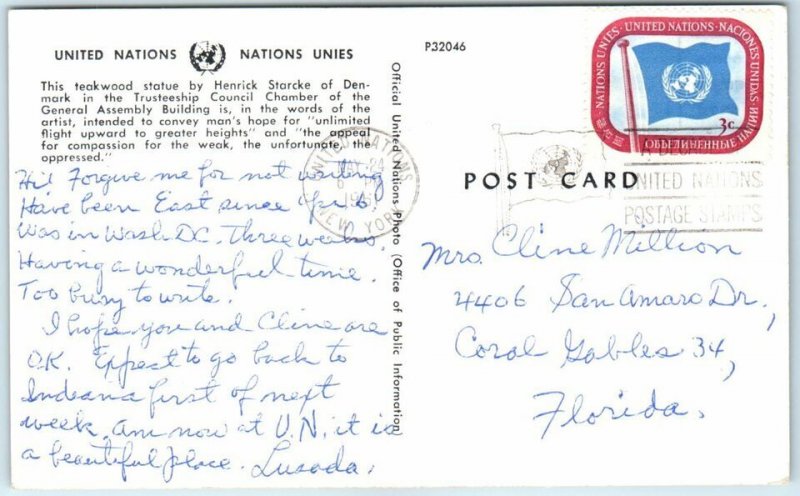 UNITED NATIONS NATIONS UNIES
This teakwood statue by Henrick Starcke of Den-
mark in the Trusteeship Council Chamber of the
General Assembly Building is, in the words of the
artist, intended to convey man's hope for "unlimited
flight upward to greater heights" and "the appeal
for compassion for the weak, the unfortunate, the
oppressed."
Hi! Forgive me for not writing
Have been East since Apr 6
Was in Wash. D.C. Three weeks.
Having a wonderful time.
Too busy to write.
I hope you and Cline are
O.K. Expect to go back to
Indiana first of next
week. Am now at U.N. it is
a beautiful place.
Official United Nations Photo (Office of Public Information)
P32046
NATIONS UNIES · UNITED NATIONS · NACIONES UNIDAS
ОБЪЕДИНЕННЫЕ НАЦИИ
3c
UNITED NATIONS
MAY 24
NEW YORK
UNITED NATIONS
POSTAGE STAMPS
POST CARD
Mrs. Cline Million
4406 San Amaro Dr.,
Coral Gables 34,
Florida.